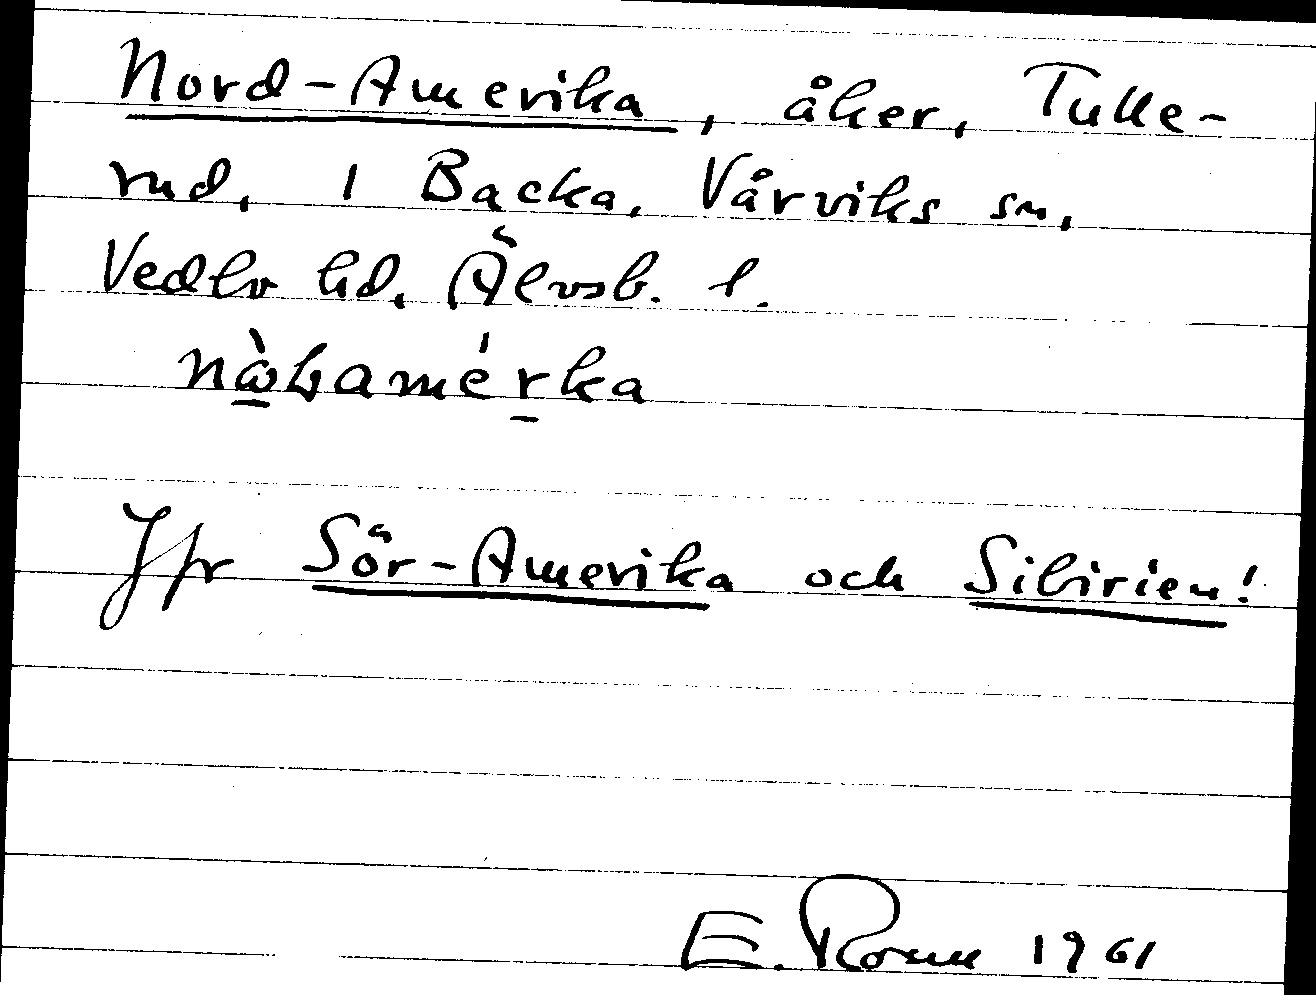 Nord-Amerika, åker, Tulle-
rud, 1 Backa, Vårviks sn,
Vedbo hd, Älvsb. l.
Jfr Sör-Amerika och Sibirien!
E. 1961